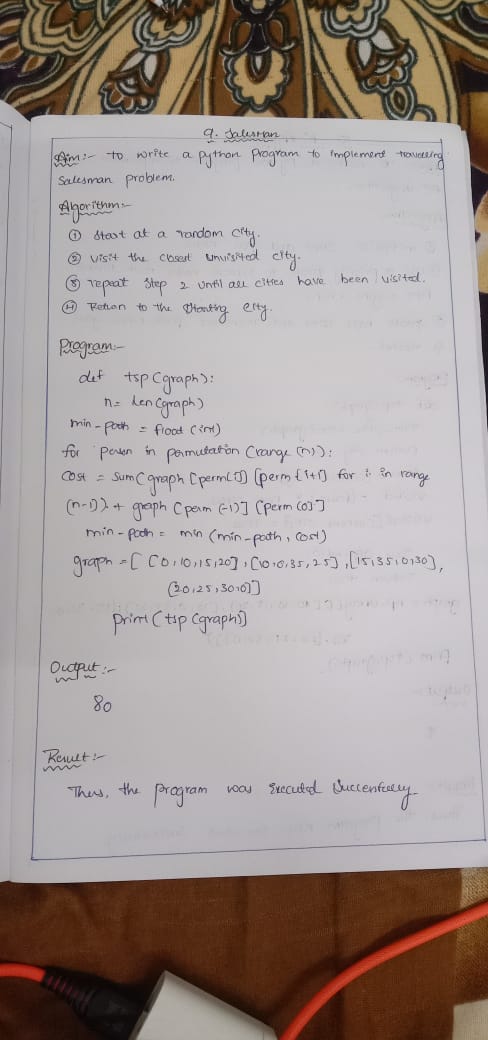 9. Salesman
Aim:- to write a python program to implement traveling
Salesman problem.
Algorithm:-
① Start at a random city.
② visit the closest unvisited city.
③ repeat step 2 until all cities have been visited.
④ Return to the starting city.
Program:-
def tsp(graph):
n= len(graph)
min-path = float(inf)
for perm in permutation (range (n)):
cost = sum(graph [perm[i]] [perm [i+1] for i in range
(n-1)) + graph [perm (-1)] [perm [0]]
min-path = min (min-path, cost)
graph = [ [0,10,15,20], [10,0,35,25], [15,35,0,30],
[20,25,30,0]]
print(tsp(graph))
Output:-
80
Result:-
Thus, the program was executed successfully